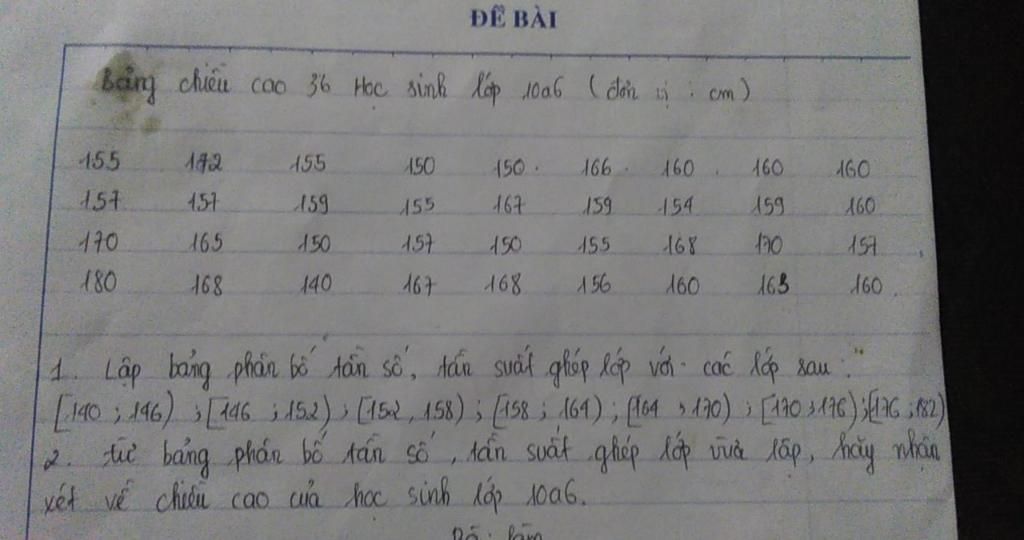 ĐỀ BÀI
Bảng chiều cao 36 Học sinh lớp 10a6 (đơn vị : cm)
155 172 155 150 150 166 160 160 160
157 157 159 155 167 159 154 159 160
170 165 150 157 150 155 168 170 157
180 168 140 167 168 156 160 163 160
1. Lập bảng phân bố tần số, tần suất ghép lớp với các lớp sau :
[140 ; 146) ; [146 ; 152) ; [152 , 158) ; [158 ; 164) ; [164 , 170) ; [170 ; 176) ; [176 ; 182)
2. từ bảng phân bố tần số, tần suất ghép lớp vừa lập, hãy nhận
xét về chiều cao của học sinh lớp 10a6.